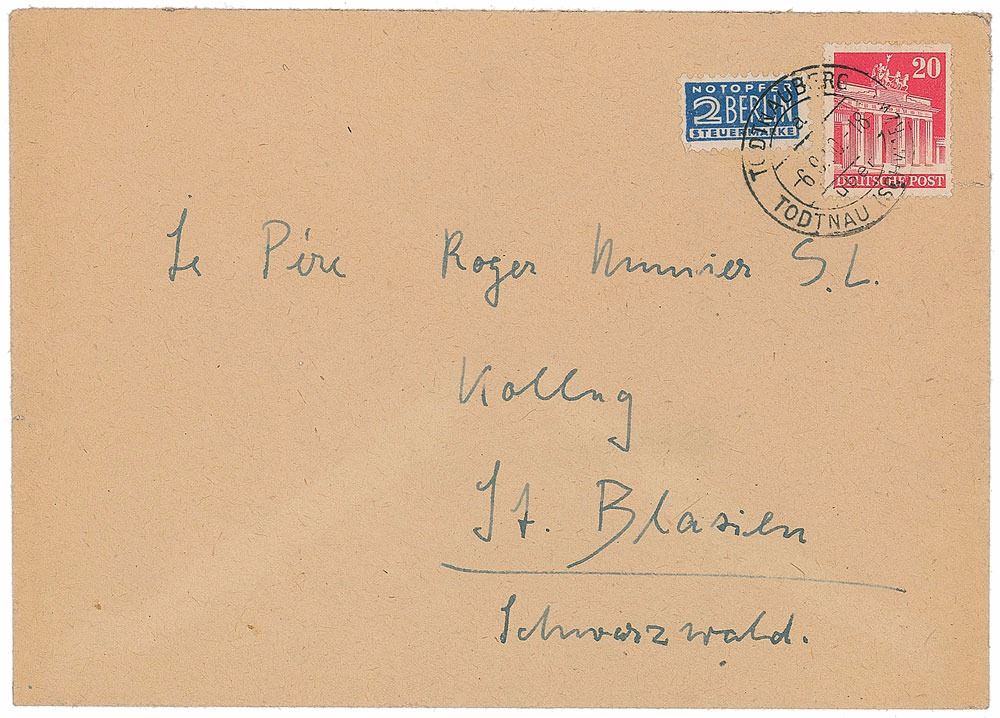 NOTOPFER
2 BERLIN
STEUERMARKE
20
DEUTSCHE POST
TODTNAUBERG
a
über
TODTNAU (SCHWARZW)
Le Père Roger Munier S.L.
Kolleg
St. Blasien
Schwarzwald.